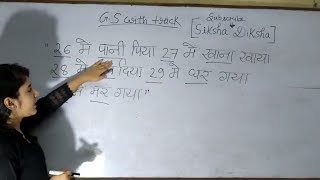 G.S with track
Subscribe
[Siksha Diksha]
"26 में पानी पिया 27 में खाना खाया
28 में दिया 29 में घर गया
में मर गया"